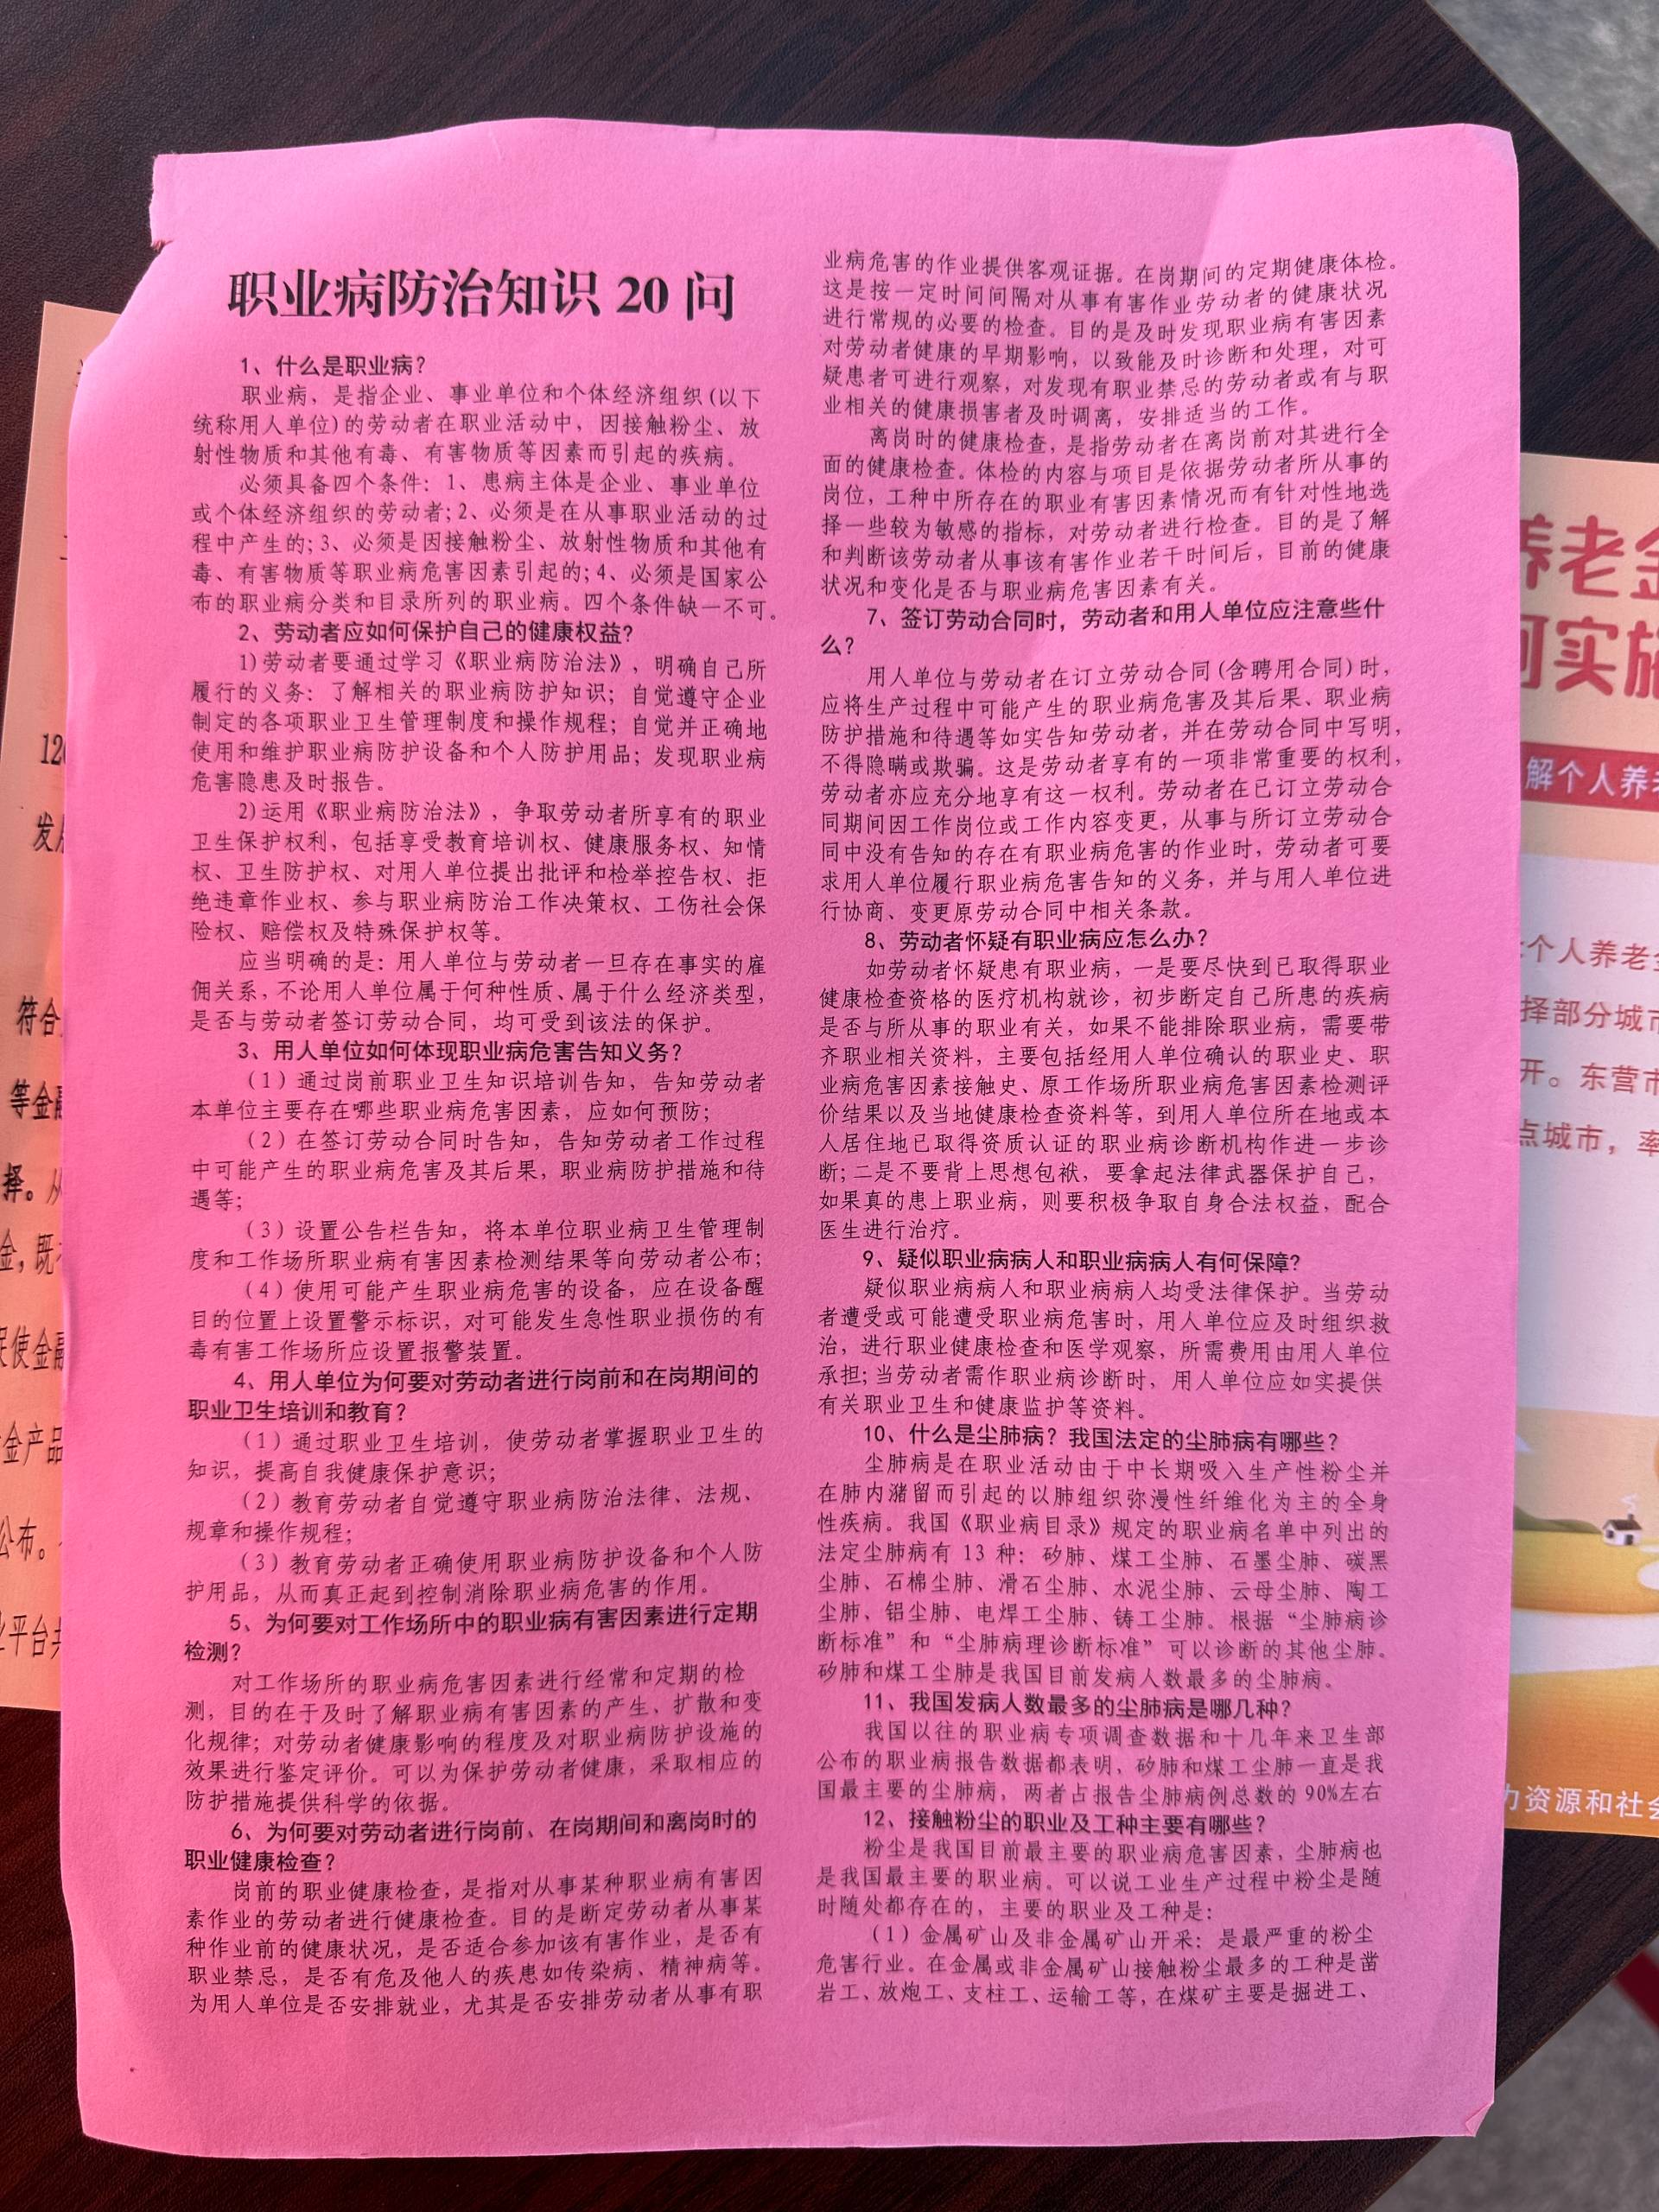 职业病防治知识 20 问
1、什么是职业病？
职业病，是指企业、事业单位和个体经济组织(以下
统称用人单位)的劳动者在职业活动中，因接触粉尘、放
射性物质和其他有毒、有害物质等因素而引起的疾病。
必须具备四个条件：1、患病主体是企业、事业单位
或个体经济组织的劳动者；2、必须是在从事职业活动的过
程中产生的；3、必须是因接触粉尘、放射性物质和其他有
毒、有害物质等职业病危害因素引起的；4、必须是国家公
布的职业病分类和目录所列的职业病。四个条件缺一不可。
2、劳动者应如何保护自己的健康权益？
1)劳动者要通过学习《职业病防治法》，明确自己所
履行的义务：了解相关的职业病防护知识；自觉遵守企业
制定的各项职业卫生管理制度和操作规程；自觉并正确地
使用和维护职业病防护设备和个人防护用品；发现职业病
危害隐患及时报告。
2)运用《职业病防治法》，争取劳动者所享有的职业
卫生保护权利，包括享受教育培训权、健康服务权、知情
权、卫生防护权、对用人单位提出批评和检举控告权、拒
绝违章作业权、参与职业病防治工作决策权、工伤社会保
险权、赔偿权及特殊保护权等。
应当明确的是：用人单位与劳动者一旦存在事实的雇
佣关系，不论用人单位属于何种性质、属于什么经济类型，
是否与劳动者签订劳动合同，均可受到该法的保护。
3、用人单位如何体现职业病危害告知义务？
（1）通过岗前职业卫生知识培训告知，告知劳动者
本单位主要存在哪些职业病危害因素，应如何预防；
（2）在签订劳动合同时告知，告知劳动者工作过程
中可能产生的职业病危害及其后果，职业病防护措施和待
遇等；
（3）设置公告栏告知，将本单位职业病卫生管理制
度和工作场所职业病有害因素检测结果等向劳动者公布；
（4）使用可能产生职业病危害的设备，应在设备醒
目的位置上设置警示标识，对可能发生急性职业损伤的有
毒有害工作场所应设置报警装置。
4、用人单位为何要对劳动者进行岗前和在岗期间的
职业卫生培训和教育？
（1）通过职业卫生培训，使劳动者掌握职业卫生的
知识，提高自我健康保护意识；
（2）教育劳动者自觉遵守职业病防治法律、法规、
规章和操作规程；
（3）教育劳动者正确使用职业病防护设备和个人防
护用品，从而真正起到控制消除职业病危害的作用。
5、为何要对工作场所中的职业病有害因素进行定期
检测？
对工作场所的职业病危害因素进行经常和定期的检
测，目的在于及时了解职业病有害因素的产生、扩散和变
化规律；对劳动者健康影响的程度及对职业病防护设施的
效果进行鉴定评价。可以为保护劳动者健康，采取相应的
防护措施提供科学的依据。
6、为何要对劳动者进行岗前、在岗期间和离岗时的
职业健康检查？
岗前的职业健康检查，是指对从事某种职业病有害因
素作业的劳动者进行健康检查。目的是断定劳动者从事某
种作业前的健康状况，是否适合参加该有害作业，是否有
职业禁忌，是否有危及他人的疾患如传染病、精神病等。
为用人单位是否安排就业，尤其是否安排劳动者从事有职
业病危害的作业提供客观证据。在岗期间的定期健康体检。
这是按一定时间间隔对从事有害作业劳动者的健康状况
进行常规的必要的检查。目的是及时发现职业病有害因素
对劳动者健康的早期影响，以致能及时诊断和处理，对可
疑患者可进行观察，对发现有职业禁忌的劳动者或有与职
业相关的健康损害者及时调离，安排适当的工作。
离岗时的健康检查，是指劳动者在离岗前对其进行全
面的健康检查。体检的内容与项目是依据劳动者所从事的
岗位，工种中所存在的职业有害因素情况而有针对性地选
择一些较为敏感的指标，对劳动者进行检查。目的是了解
和判断该劳动者从事该有害作业若干时间后，目前的健康
状况和变化是否与职业病危害因素有关。
7、签订劳动合同时，劳动者和用人单位应注意些什
么？
用人单位与劳动者在订立劳动合同(含聘用合同)时，
应将生产过程中可能产生的职业病危害及其后果、职业病
防护措施和待遇等如实告知劳动者，并在劳动合同中写明，
不得隐瞒或欺骗。这是劳动者享有的一项非常重要的权利，
劳动者亦应充分地享有这一权利。劳动者在已订立劳动合
同期间因工作岗位或工作内容变更，从事与所订立劳动合
同中没有告知的存在有职业病危害的作业时，劳动者可要
求用人单位履行职业病危害告知的义务，并与用人单位进
行协商、变更原劳动合同中相关条款。
8、劳动者怀疑有职业病应怎么办？
如劳动者怀疑患有职业病，一是要尽快到已取得职业
健康检查资格的医疗机构就诊，初步断定自己所患的疾病
是否与所从事的职业有关，如果不能排除职业病，需要带
齐职业相关资料，主要包括经用人单位确认的职业史、职
业病危害因素接触史、原工作场所职业病危害因素检测评
价结果以及当地健康检查资料等，到用人单位所在地或本
人居住地已取得资质认证的职业病诊断机构作进一步诊
断；二是不要背上思想包袱，要拿起法律武器保护自己，
如果真的患上职业病，则要积极争取自身合法权益，配合
医生进行治疗。
9、疑似职业病病人和职业病病人有何保障？
疑似职业病病人和职业病病人均受法律保护。当劳动
者遭受或可能遭受职业病危害时，用人单位应及时组织救
治，进行职业健康检查和医学观察，所需费用由用人单位
承担；当劳动者需作职业病诊断时，用人单位应如实提供
有关职业卫生和健康监护等资料。
10、什么是尘肺病？我国法定的尘肺病有哪些？
尘肺病是在职业活动由于中长期吸入生产性粉尘并
在肺内潴留而引起的以肺组织弥漫性纤维化为主的全身
性疾病。我国《职业病目录》规定的职业病名单中列出的
法定尘肺病有 13 种：矽肺、煤工尘肺、石墨尘肺、碳黑
尘肺、石棉尘肺、滑石尘肺、水泥尘肺、云母尘肺、陶工
尘肺、铝尘肺、电焊工尘肺、铸工尘肺。根据“尘肺病诊
断标准”和“尘肺病理诊断标准”可以诊断的其他尘肺。
矽肺和煤工尘肺是我国目前发病人数最多的尘肺病。
11、我国发病人数最多的尘肺病是哪几种？
我国以往的职业病专项调查数据和十几年来卫生部
公布的职业病报告数据都表明，矽肺和煤工尘肺一直是我
国最主要的尘肺病，两者占报告尘肺病例总数的 90%左右
12、接触粉尘的职业及工种主要有哪些？
粉尘是我国目前最主要的职业病危害因素，尘肺病也
是我国最主要的职业病。可以说工业生产过程中粉尘是随
时随处都存在的，主要的职业及工种是：
（1）金属矿山及非金属矿山开采：是最严重的粉尘
危害行业。在金属或非金属矿山接触粉尘最多的工种是凿
岩工、放炮工、支柱工、运输工等，在煤矿主要是掘进工、
120
发
符合
等金融
择。从
金，既
使金融
金产品
公布。
平台
养老金
何实施
解个人养老
个人养老金
择部分城市
开。东营市
点城市，率
力资源和社会